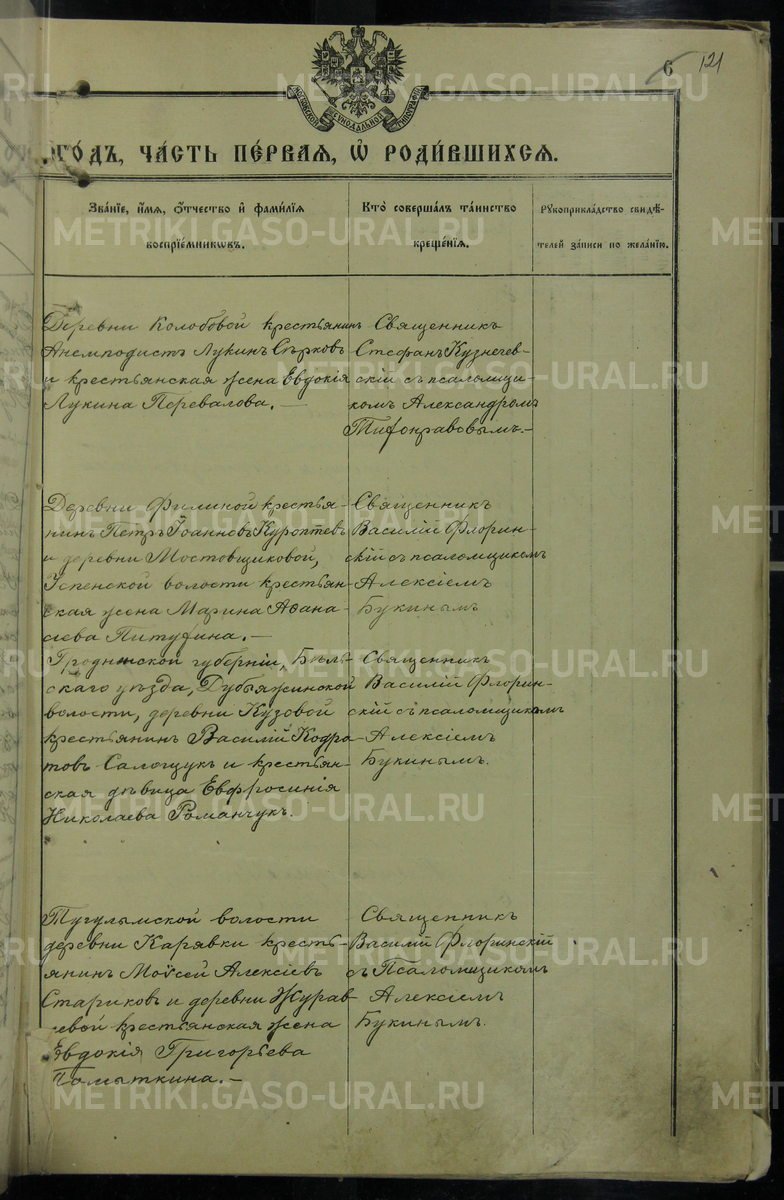 6 121
МОСКОВСКОЙ СѴНОДАЛЬНОЙ ТИПОГРАФІИ
ГО́ДЪ, ЧА́СТЬ ПЕ́РВАЯ, Ѡ҆ РОДИ́ВШИХСЯ.
Зва́нїе, и҆́мя, ѻ҆́тчество и҆ фами́лїя
воспрїе́мникѡвъ.
Кто̀ соверша́лъ та́инство
креще́нїя.
Рꙋкоприкла́дство свидѣ́-
телей за́писи по жела́нїю.
Деревни Колобовой крестьянинъ
Анемподистъ Лукинъ Сѣрковъ
и крестьянская жена Евдокія
Лукина Перевалова.—
Священникъ
Стефанъ Кузнечев-
скій съ псаломщи-
комъ Александромъ
Тифонравовымъ.—
Деревни Филиной крестья-
нинъ Петръ Іоанновъ Куроптевъ
и деревни Мостовщиковой,
Успенской волости крестьян-
ская жена Марина Аѳана-
сіева Питухина.—
Священникъ
Василій Флорин-
скій съ псаломщикомъ
Алексіемъ
Букинымъ
Гродненской губерніи, Бѣль-
скаго уѣзда, Дубяжинской
волости, деревни Кузовой
крестьянинъ Василій Кодра-
товъ Салощукъ и крестьян-
ская дѣвица Евфросинія
Николаева Романчукъ.
Священникъ
Василій Флорин-
скій съ псаломщикомъ
Алексіемъ
Букинымъ.
Тугулымской волости
деревни Карявки кресть-
янинъ Моѵсей Алексіевъ
Стариковъ и деревни Журав-
левой крестьянская жена
Евдокія Григорьева
Помыткина.—
Священникъ
Василій Флоринскій
съ Псаломщикомъ
Алексіемъ
Букинымъ.
METRIKI.GASO-URAL.RU